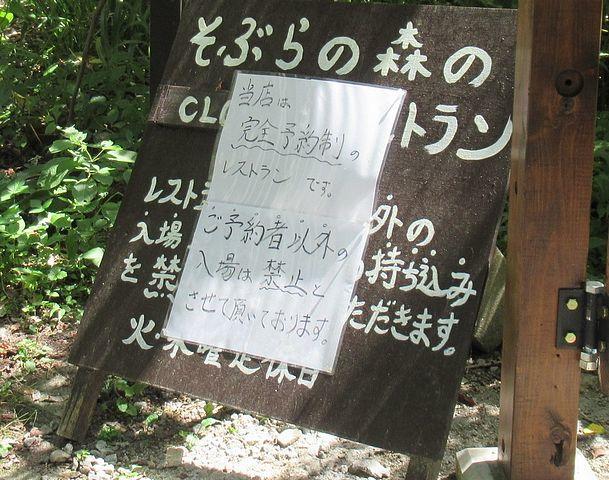 そぶらの森の
CL トラン
当店は
完全予約制の
レストランです。
ご予約者以外の
入場は禁止と
させて頂いております。
レスト 外の
入場 持ち込み
を禁 ただきます。
火・木曜定休日